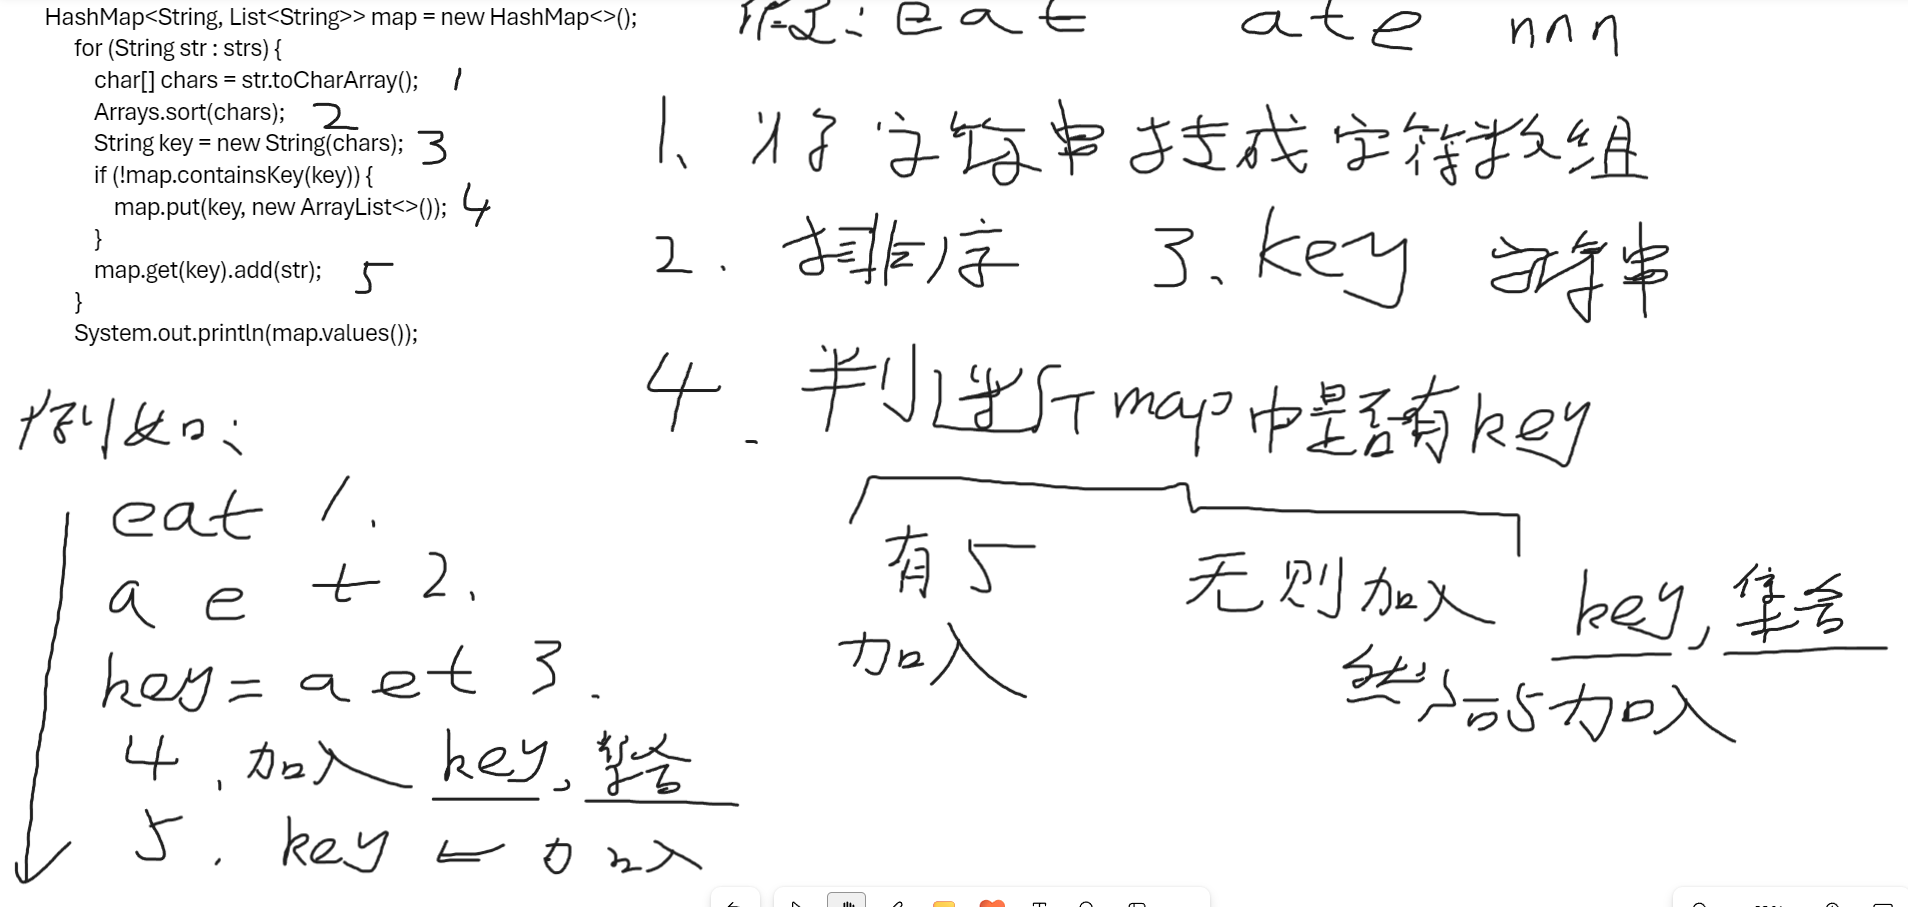 HashMap<String, List<String>> map = new HashMap<>();
for (String str : strs) {
char[] chars = str.toCharArray(); 1
Arrays.sort(chars); 2
String key = new String(chars); 3
if (!map.containsKey(key)) {
map.put(key, new ArrayList<>()); 4
}
map.get(key).add(str); 5
}
System.out.println(map.values());
eat ate nnn
1、将字符串转成字符数组
2. 排序 3、key 字符串
4. 判断 map中是否有key
有5 加入
无则加入 key, 集合
然后5加入
例如:
eat 1.
a e t 2、
key = a e t 3.
4 , 加入 key, 集合
5 . key ← 加入